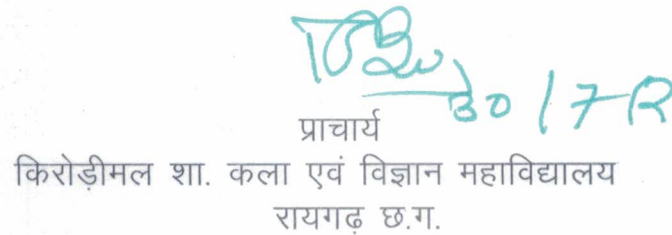 प्राचार्य
किरोड़ीमल शा. कला एवं विज्ञान महाविद्यालय
रायगढ़ छ.ग.